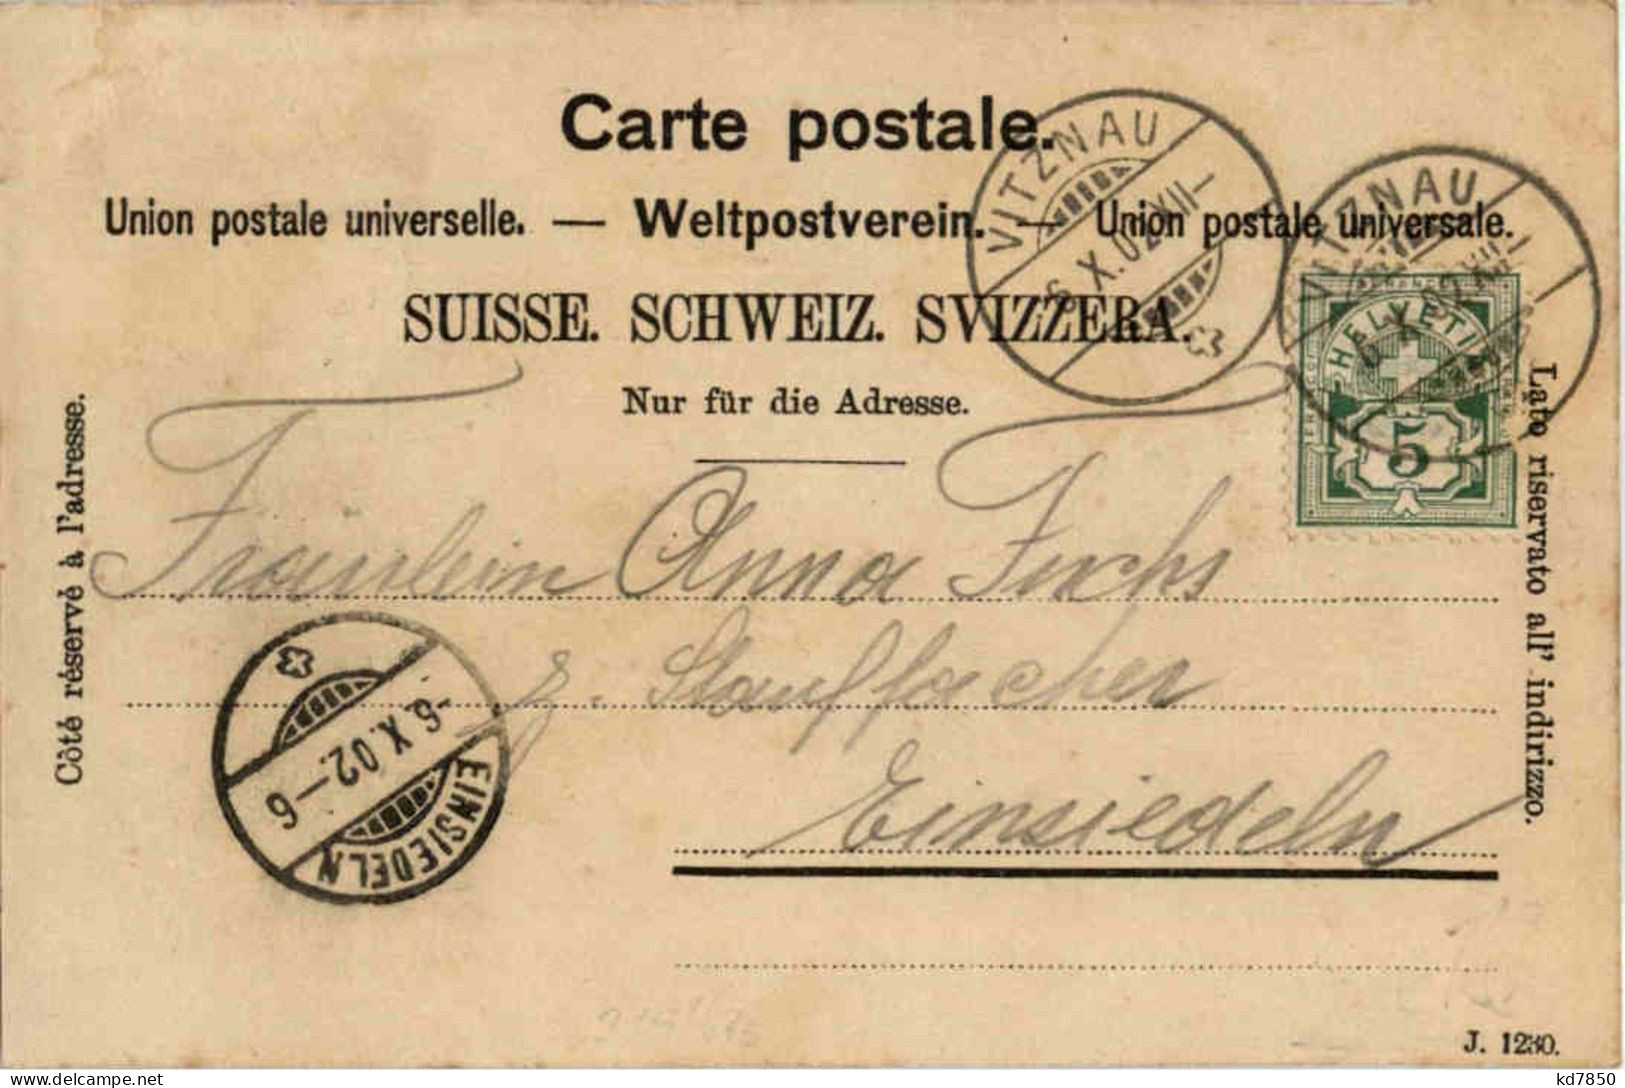 Carte postale.
Union postale universelle. — Weltpostverein. — Union postale universale.
SUISSE. SCHWEIZ. SVIZZERA.
Nur für die Adresse.
Côté réservé à l'adresse.
Lato riservato all' indirizzo.
VITZNAU
6.X.02.XII–
VITZNAU
HELVETIA
5
Fräulein Anna Fuchs
z. Stauffacher
Einsiedeln
-6.X.02.–6
EINSIEDELN
J. 1230.
kd7850